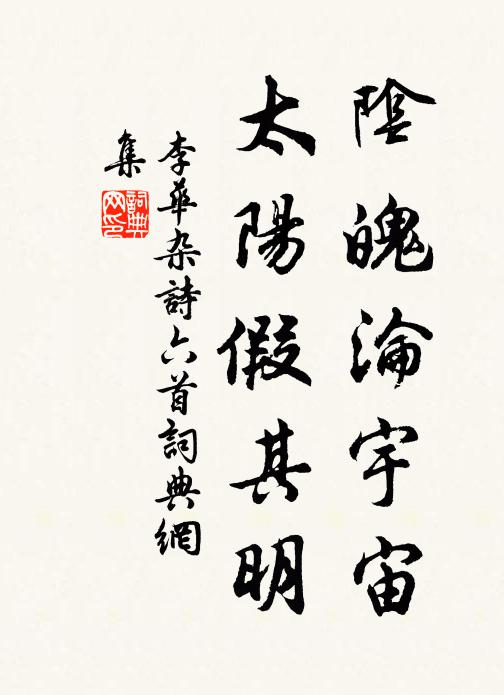 陰魄淪宇宙
太陽假其明
李華杂詩六首詞典網
集
詞典网印